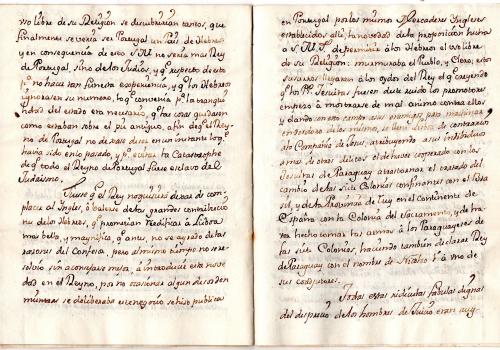 no libre de su Religion se descubririan tantos, que
finalmente se veria ser Portugal un Pais de Hebreos
y en consequencia de esto S.M. no seria mas Rey
de Portugal, sino de los Judios, y q.e respecto de esto
p.a no hacer tan funesta experiencia, y q.e los Hebreos
ignorasen su numero, lo q.e convenia p.a la tranqui-
lidad del estado era necesario, q.e las cosas quedasen
como estaban sobre el pie antiguo, a fin de q.e el Rey-
no de Portugal no dejase de ser en un instante lo q.e
havia sido en lo pasado, y p.a evitar la Catastrophe
de q.e todo el Reyno de Portugal fuese esclavo del
Judaismo.
Puesto q.e el Rey no quisiese dejar de com-
placer al Ingles, ô valerse de las grandes contribucio-
nes de los Hebreos, q.e prometian reedificar à Lisboa
mas bella, y magnifica, q.e antes, no se agradò de las
rasones del Confesor, pero al mismo tiempo no se re-
solviò sin aconsejarse mejor, à introducir esta nove-
dad en el Reyno, por no ocasionar algun desorden
mientras se deliberaba el negocio se hizo publica
en Portugal, por los mismos Mercaderes Ingleses
establecidos alli, la novedad de la proposicion hecha
a S.M.F. de permitir à los Hebreos el uso libre
de su Religion: murmuraba el Pueblo, y Clero; estos
susurros llegaron à los oydos del Rey el q.e creyendo
q.e los PP. Jesuitas fuesen de este ruido los promotores
empezò à mostrarse de mal animo contra ellos
y dando con esto campo à sus enemigos, para
los mismos, se
Compañia de Jesus, atribuyendo à sus individuos
à mas de otros delitos el de haver cooperado con los
Jesuitas de Paraguay à trastornar el tratado del
cambio de las siete Colonias confinantes con el Bra-
sil, y de la Provincia de Tuy en el Continente de
España con la Colonia del Sacramento, y de ha-
ver hecho tomar las armas à los Paraguayeses de
las siete Colonias, haciendo tambien declarar Rey
de Paraguay con el nombre de Nicolao 1.o à uno de
sus conductores.
Todas estas ridiculas fabulas dignas
del desprecio de los hombres de Juicio eran aug-